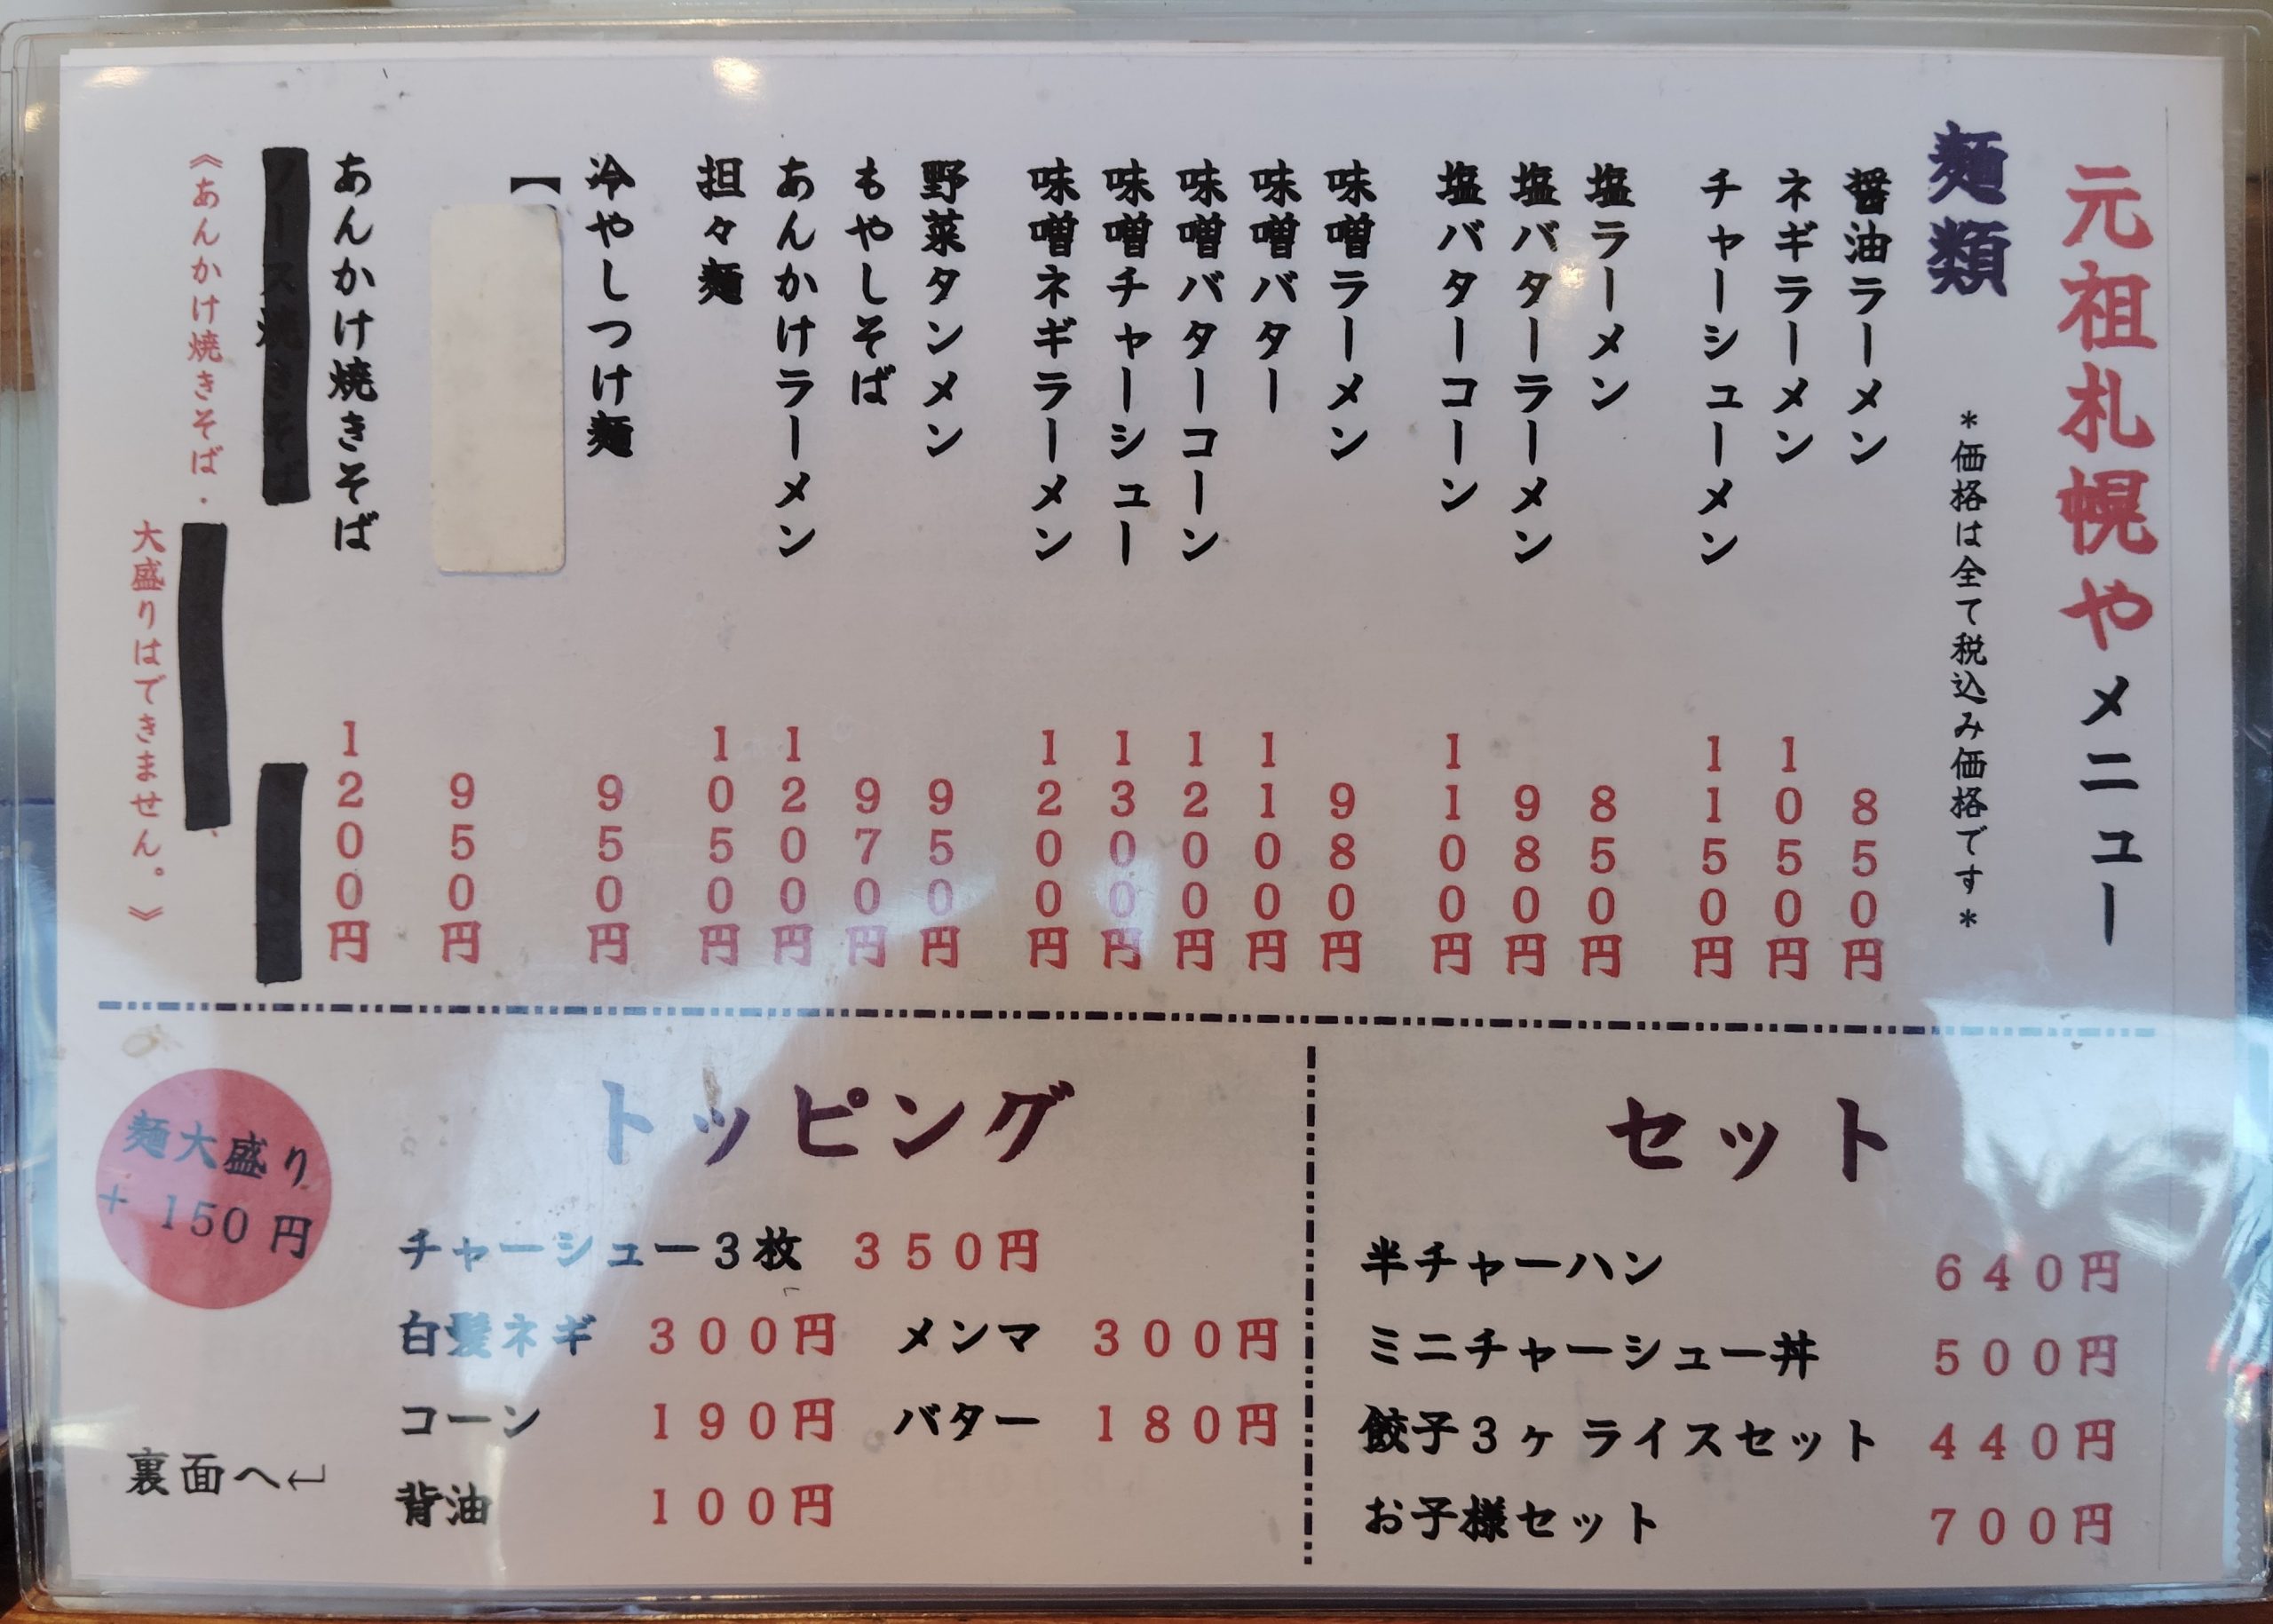 元祖札幌やメニュー
麺類 *価格は全て税込み価格です*
醤油ラーメン 850円
ネギラーメン 1050円
チャーシューメン 1150円
塩ラーメン 850円
塩バターラーメン 980円
塩バターコーン 1100円
味噌ラーメン 980円
味噌バター 1100円
味噌バターコーン 1200円
味噌チャーシュー 1300円
味噌ネギラーメン 1200円
野菜タンメン 950円
もやしそば 970円
あんかけラーメン 1200円
担々麺 1050円
冷やしつけ麺 950円
【
950円
あんかけ焼きそば 1200円
ソース焼きそば
《あんかけ焼きそば・
大盛りはできません。》
セット
半チャーハン 640円
ミニチャーシュー丼 500円
餃子3ヶライスセット 440円
お子様セット 700円
トッピング
チャーシュー3枚 350円
白髪ネギ 300円 メンマ 300円
コーン 190円 バター 180円
背油 100円
麺大盛り
+150円
裏面へ↵